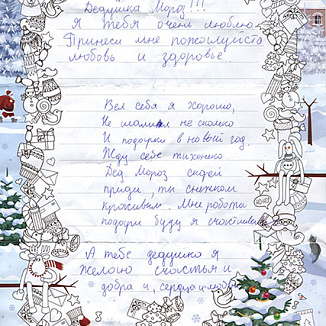 Дедушка Мороз!!!
Я тебя очень люблю.
Принеси мне пожалуйста
любовь и здоровье.
Вел себя я хорошо,
Не шалил не сколко
И подарки в новый год.
Жду себе тихонко
Дед Мороз скорей
приди, ты снежком
красивым. Мне роботы
подари буду я счастливым
А тебе дедушка я
желаю счастья и
добра и, сердца и любви